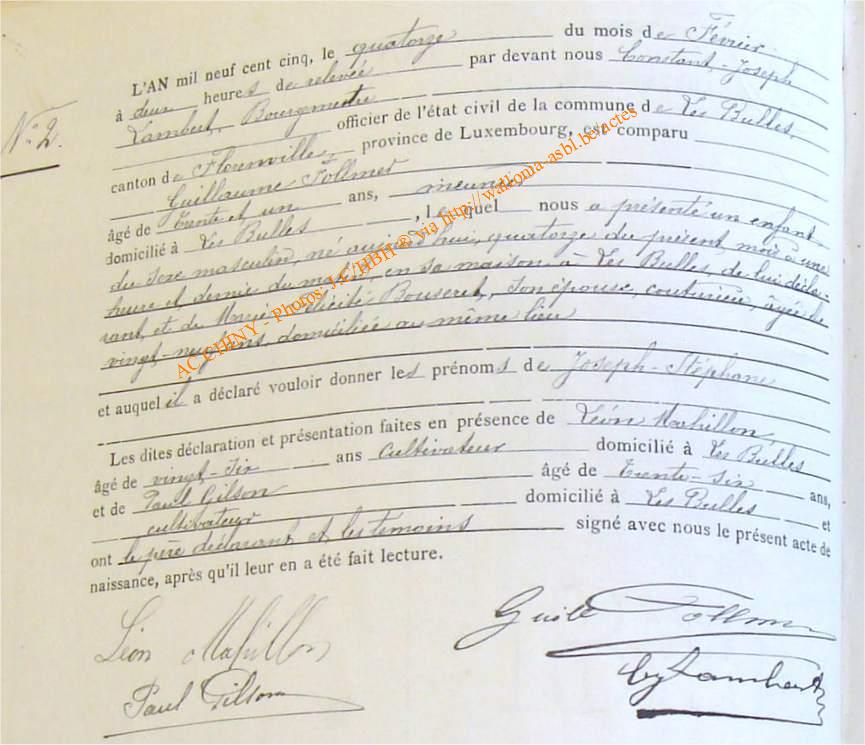 L'AN mil neuf cent cinq, le quatorze du mois de Février
à deux heures de relevée par devant nous Constant-Joseph
Lambert, Bourgmestre
officier de l'état civil de la commune de Les Bulles,
canton de Florenville, province de Luxembourg, est comparu
Guillaume Follmer
âgé de trente et un ans, meunier,
domicilié à Les Bulles, lequel nous a présenté un enfant
du sexe masculin, né aujourd'hui, quatorze du présent mois à une
heure et demie du matin, en sa maison à Les Bulles, de lui décla-
rant, et de Marie Félicité Bouseret, son épouse, couturière, âgée de
vingt-neuf ans, domiciliée au même lieu
et auquel il a déclaré vouloir donner les prénoms de Joseph-Stéphane
Les dites déclaration et présentation faites en présence de Léon Mahillon,
âgé de vingt-six ans cultivateur domicilié à Les Bulles
et de Paul Gilson âgé de trente-six ans,
cultivateur domicilié à Les Bulles et
ont le père déclarant et les témoins signé avec nous le présent acte de
naissance, après qu'il leur en a été fait lecture.
N° 2.
Léon Mahillon
Paul Gilson
Guill Follmer
Lambert
ACCHHNY - Photos: J.C HBH ® via http://wallonia-asbl.be/actes